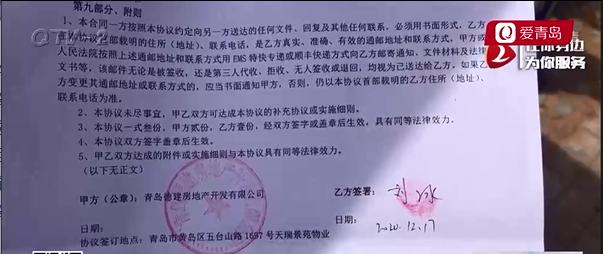 QTV-2
爱青岛
在你身边
为你服务
第九部分、附则
1、本合同一方按照本协议约定向另一方送达的任何文件、回复及其他任何联系，必须用书面形式，乙方
在本协议首部载明的住所（地址）、联系电话，是乙方真实、准确、有效的通邮地址和联系方式，甲方或
人民法院按照上述通邮地址和联系方式用EMS特快专递或顺丰快递方向乙方邮寄通知、文件材料及法律
文书等，该邮件无论是被签收，还是第三人代收、拒收、无人签收或退回，均视为已送达给乙方。如果乙
方变更其通邮地址或联系方式的，应当书面通知甲方，否则，仍以本协议首部载明的乙方住所（地址）、
联系电话为准。
2、本协议未尽事宜，甲乙双方可达成本协议的补充协议或实施细则。
3、本协议一式叁份，甲方贰份，乙方壹份，经双方签字或盖章后生效，具有同等法律效力。
4、本协议双方签字盖章后生效。
5、甲乙双方达成的附件或实施细则与本协议具有同等法律效力。
（以下无正文）
甲方（公章）：青岛德建房地产开发有限公司
乙方签署：刘冰
日期：
日期：2020.12.17
协议签订地点：青岛市黄岛区五台山路1697号天瑞景苑物业